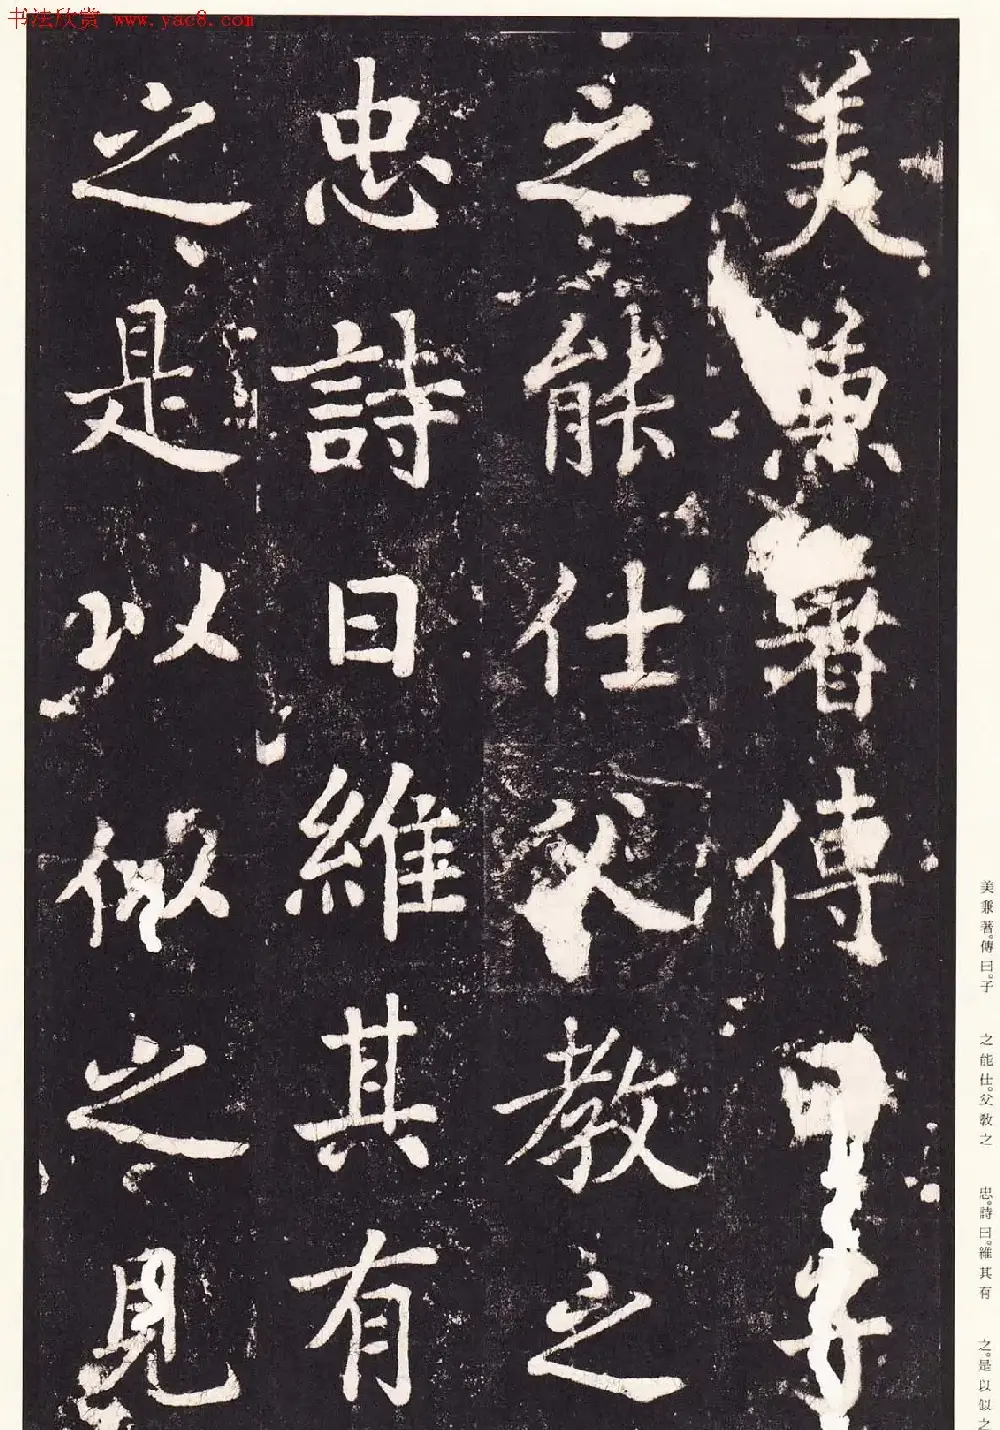 书法欣赏 www.yac8.com
美兼著傳曰子
之能仕父教之
忠詩曰維其有
之是以似之見
美兼著。傳曰。子
之能仕。父教之
忠。詩曰。維其有
之。是以似之